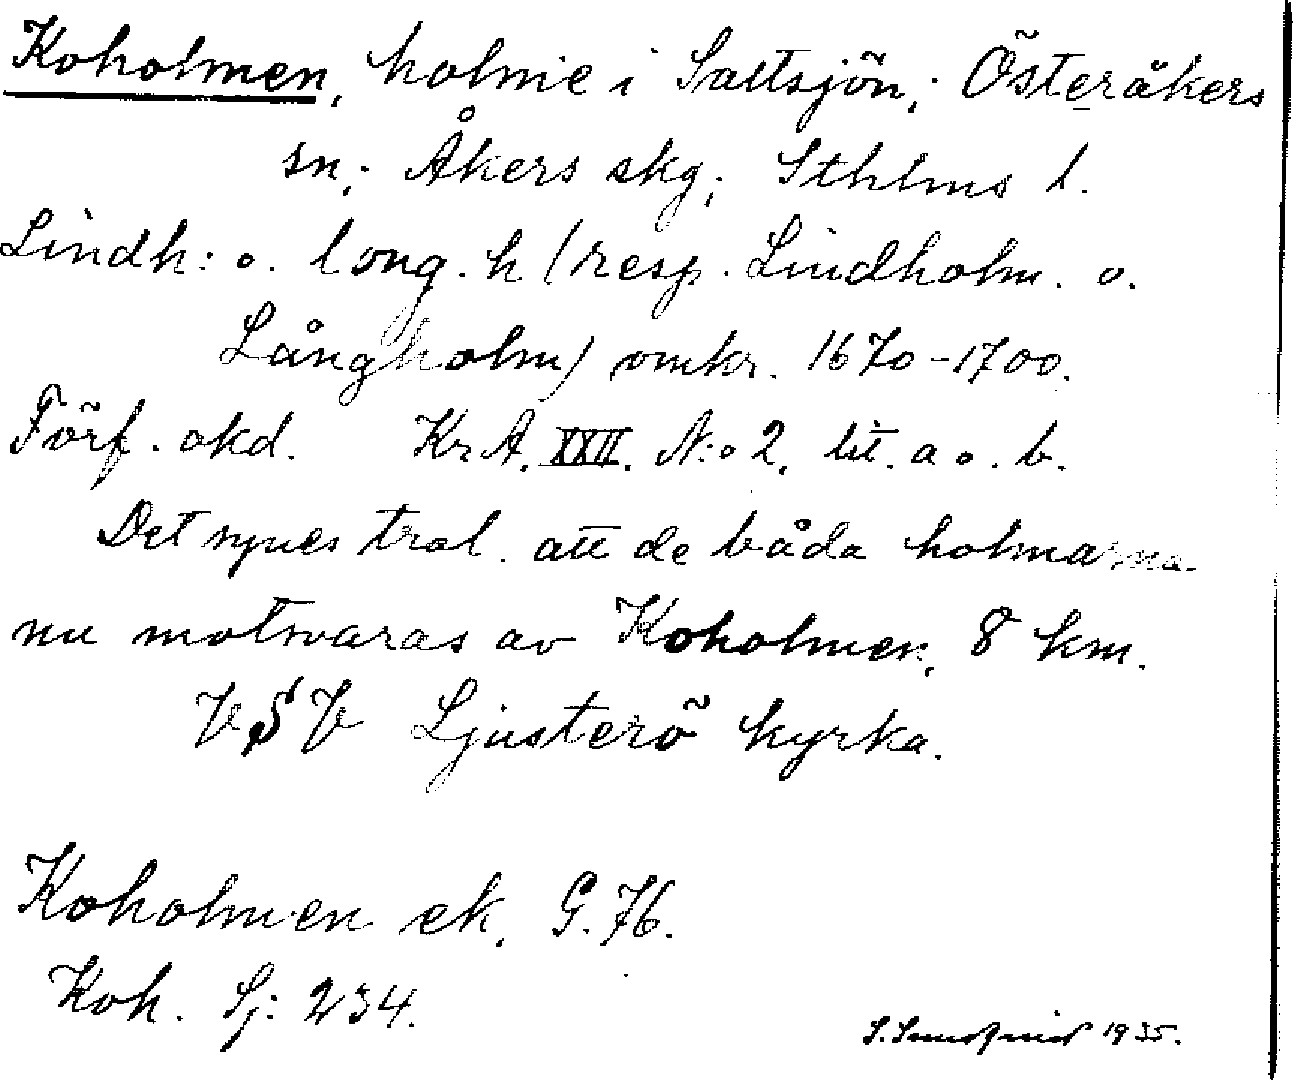 Koholmen, holme i Saltsjön; Österåkers
sn; Åkers skg; Sthlms l.
Lindh: o. long. h (resp. Lindholm. o.
Långholm) omkr. 1670-1700.
Förf. okd. Kr A. XXII. N:o 2, lit. a o. b.
Det synes trol. att de båda holmarna
nu motsvaras av Koholmen, 8 km.
V S V Ljusterö kyrka.
Koholmen ek. G. 76.
Koh. Sj: 234.
1935.